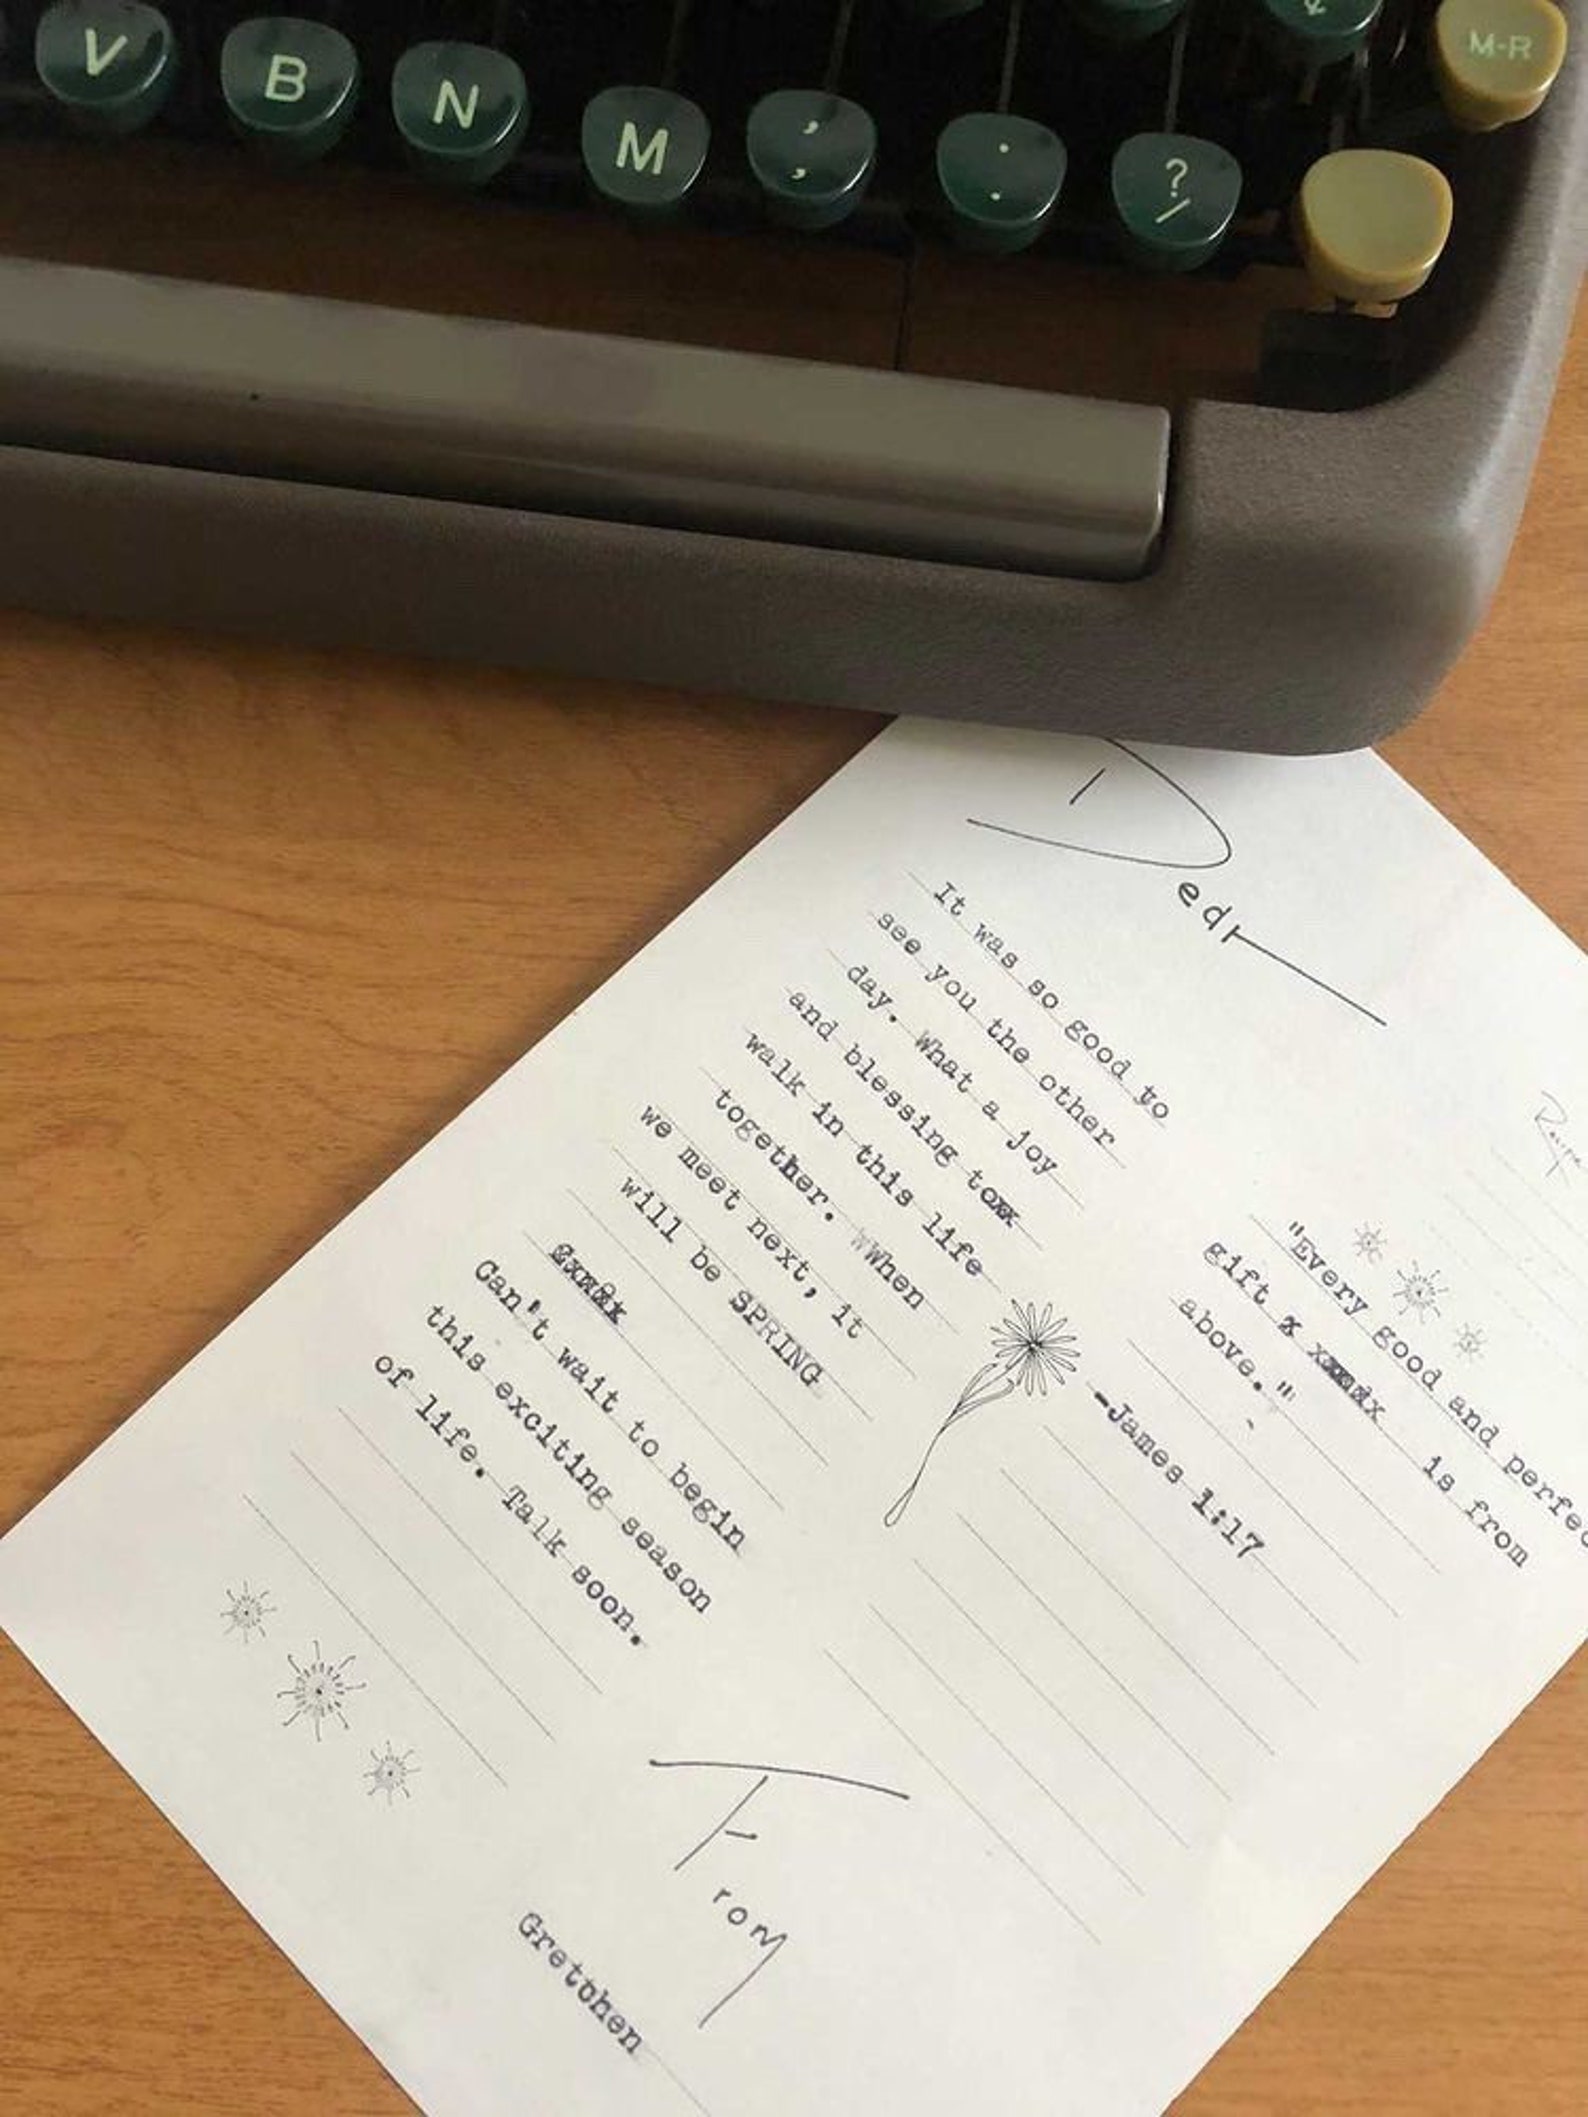 V B N M , , . . ? /
M-R
Dear
It was so good to
see you the other
day. What a joy
and blessing toxx
walk in this life
together. wWhen
we meet next, it
will be SPRING
Can't wait to begin
this exciting season
of life. Talk soon.
From
Gretchen
"Every good and perfec
gift x is from
above."
-James 1:17